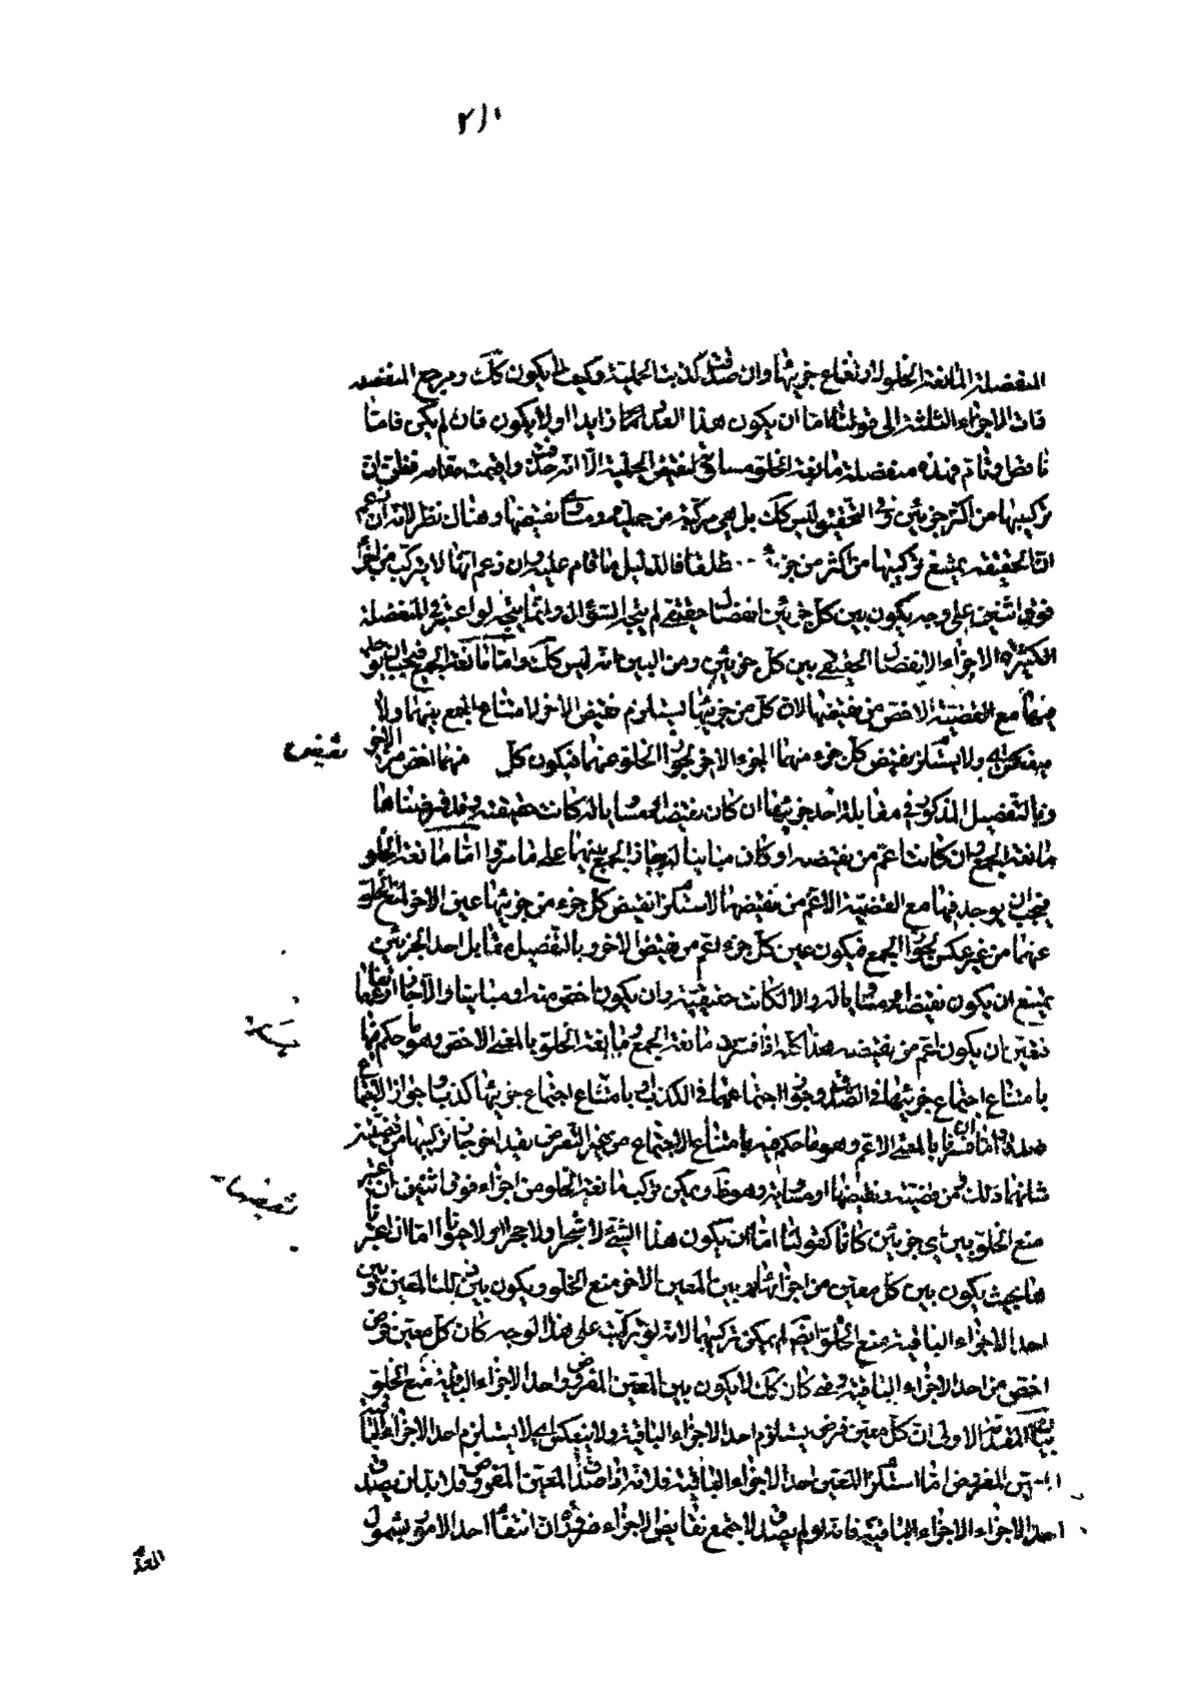 المنفصلة المانعة الخلو لارتفاع جزئيها وان صدقت كذبت الحملية وكيف لا يكون كك ومرجع المنفصلة
ذات الاجزاء الثلثة الى قولنا اما ان يكون هذا العدد اما زايدا اولا يكون فان لم يكن فاما
ناقص او تام فهذه منفصلة مانعة الخلو مساوية لنقيض الحملية الا انه حذفت واقيمت مقامه فظن ان
تركيبها من اكثر من جزئين وفي التحقيق ليس كك بل هي مركبة من حملية ومساوي نقيضها وهناك نظر لانه ان زعم
ان الحقيقة يمتنع تركيبها من اكثر من جزئين مطلقا فالدليل ما قام عليه وان زعم انها لا يتركب من اجزاء
فوق اثنين على وجه يكون بين كل جزئين انفصال حقيقي لم يتجه السؤال وانما يتجه لو اعتبر في المنفصلة
الكثيرة الاجزاء الانفصال الحقيقي بين كل جزئين ومن البين انه ليس كك واما مانعة الجمع فيجب ان يوجد
فيها مع القضية الاخص من نقيضها لان كل من جزئيها يستلزم نقيض الاخر لامتناع الجمع بينهما ولا
ينعكس اي ولا يستلزم نقيض كل جزء منهما الجزء الاخر لجواز الخلو عنهما فيكون كل منهما اخص من الاخر
نقيض
وبالتفصيل المذكور في مقابلة احد جزئيها ان كان نقيضا له او مساويا له كانت حقيقة وقد فرضناها
مانعة الجمع وان كانت اعم من نقيضه او كان مباينا له جاز الجمع بينهما على ما مر واما مانعة الخلو
فيجب ان يوجد فيها مع القضية الاعم من نقيضها لاستلزام نقيض كل جزء من جزئيها عين الاخر لمنع الخلو
عنهما من غير عكس لجواز الجمع فيكون عين كل جزء اعم من نقيض الاخر وبالتفصيل مقابل احد الجزئين
يمتنع ان يكون نقيضا له او مساويا له والا لكانت حقيقية وان يكون اخص منه او مباينا والا جاز ارتفاعهما
فتعين ان يكون اعم من نقيضه هذا كله اذا فسرت مانعة الجمع ومانعة الخلو بالمعنى الاخص وهو ما حكم فيها
بامتناع اجتماع جزئيها في الصدق وجواز اجتماعهما في الكذب او بامتناع اجتماع جزئيها كذبا وجواز اجتماعهما
صدقا واما ان فسرتا بالمعنى الاعم وهو ما حكم فيه بامتناع الاجتماع من غير التعرض بقيد اخر جاز تركيبها من قضيتين
نقيضها
شانهما ذلك ومن قضية ونقيضها او مساويه وهو ظ ويمكن تركب مانعة الخلو من اجزاء فوق اثنين ان اعتبر
منع الخلو بين اي جزئين كانا كقولنا اما ان يكون هذا الشيء لا شجرا ولا حجرا ولا حيوانا اما ان اعتبر
ها بحيث يكون بين كل معين من اجزائها وبين المعين الاخر منع الخلو ويكون بين ذلك المعين وبين
احد الاجزاء الباقية منع الخلو ايضا لم يمكن تركيبها لانه لو تركبت على هذا الوجه كان كل معين فرض
اخص من احد الاجزاء الباقية ومتى كان كك لا يكون بين المعين المفروض واحد الاجزاء الباقية منع الخلو
بيان المقدمة الاولى ان كل معين فرض يستلزم احد الاجزاء الباقية ولا ينعكس اي لا يستلزم احد الاجزاء الباقية
المعين المفروض اما استلزام المعين احد الاجزاء الباقية فلانه اذا صدق المعين المفروض فلا بد ان يصدق
احد الاجزاء الاجزاء الباقية فانه لو لم يصدق لاجتمع نقايض الاجزاء ضرورة ان انتفاء احد الامور بشمول
العدم